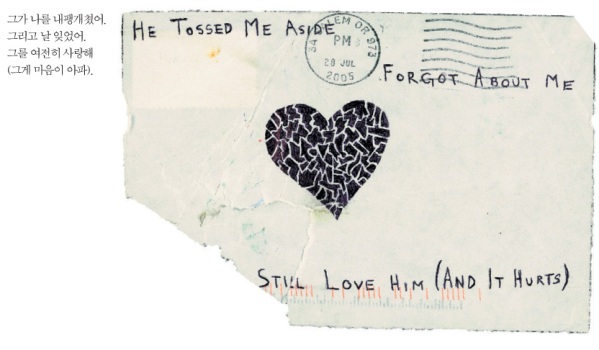 그가 나를 내팽개쳤어.
그리고 날 잊었어.
그를 여전히 사랑해
(그게 마음이 아파).
HE TOSSED ME ASIDE
SALEM OR 973
PM
28 JUL
2005
FORGOT ABOUT ME
STILL LOVE HIM (AND IT HURTS)